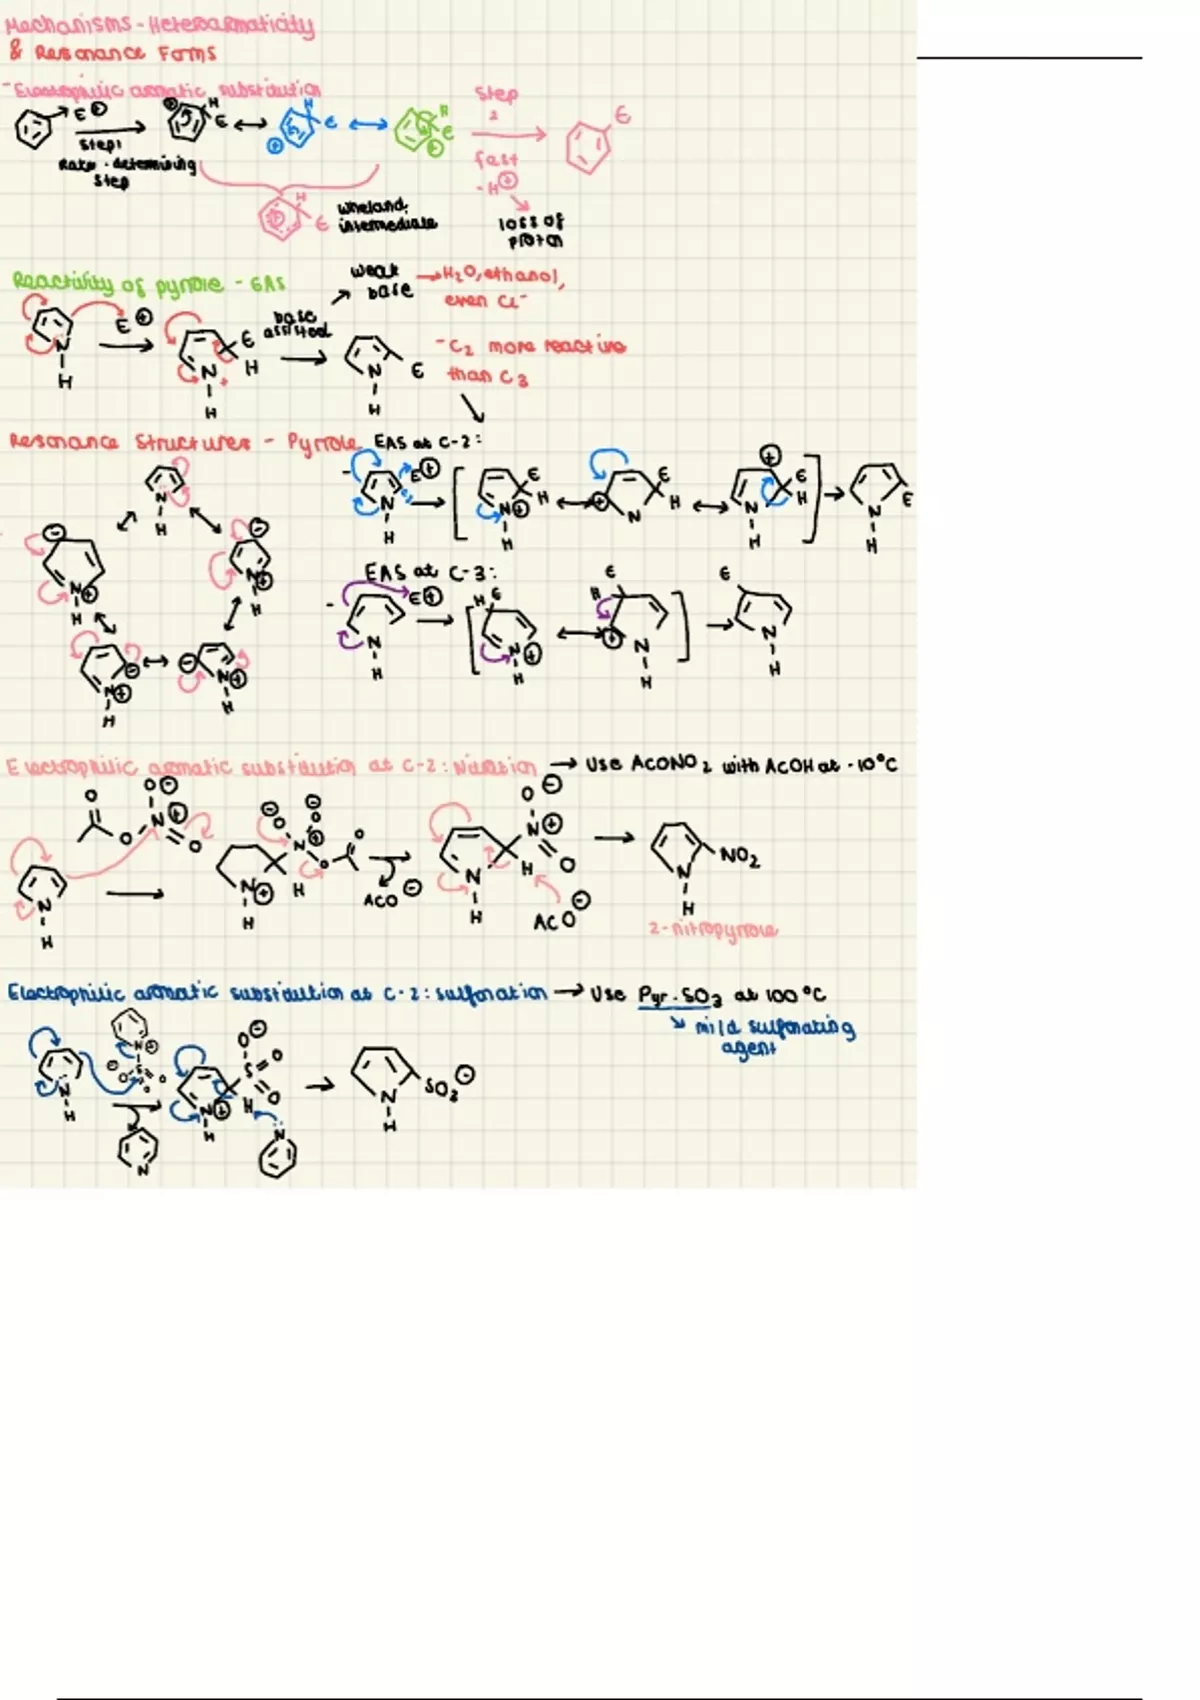 Mechanisms - Heteroarmaticity
& Resonance Forms
- Electrophilic aromatic substitution
E⊕
Step 1
Rate - determining
step
H
E
H
E
H
E
Step
2
fast
- H⊕
loss of
proton
E
H
E
wheland
intermediate
Reactivity of pyrrole - EAS
weak
base
→ H2O, ethanol,
even Cl-
base
assisted
E⊕
N
H
E
H
N
+
H
N
H
E
- C2 more reactive
than C3
Resonance Structures - Pyrrole
EAS at C-2:
N
H
E⊕
N
H
E
H
N⊕
H
E
H
N
⊕
E
H
N
H
N
H
E
EAS at C-3:
E⊕
N
H
H E
N⊕
H
E
H
⊕
N
H
E
N
H
N⊕
H
N⊕
H
N⊕
H
N⊕
H
Electrophilic aromatic substitution at C-2: Nitration → Use AcONO2 with AcOH at -10°C
O
O⊖
O
N⊕
O
N
H
N⊕
H
H
⊖O
O⊖
N⊕
O
O
AcO⊖
N
H
H
O⊖
N⊕
O
AcO⊖
N
H
NO2
2-nitropyrrole
Electrophilic aromatic substitution at C-2: sulfonation → Use Pyr·SO3 at 100°C
↘ mild sulfonating
agent
N⊕
S
N
H
N
O⊖
S
O
O
N⊕
H
H
N
N
H
SO2⊖